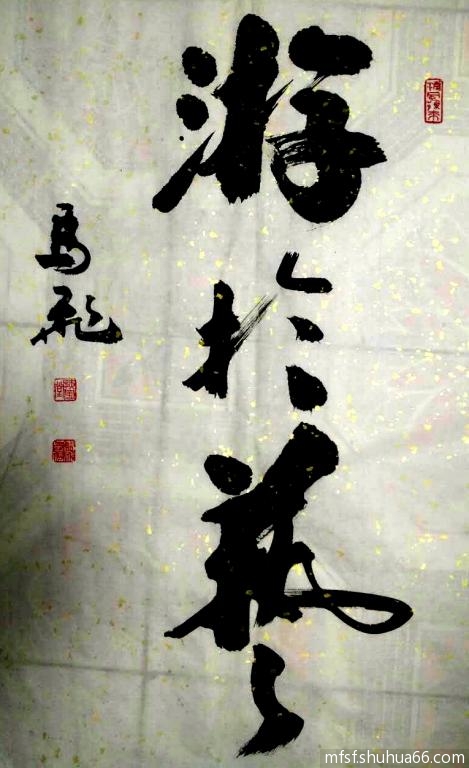 游於藝
馬飛
mfsfshuhua66.com